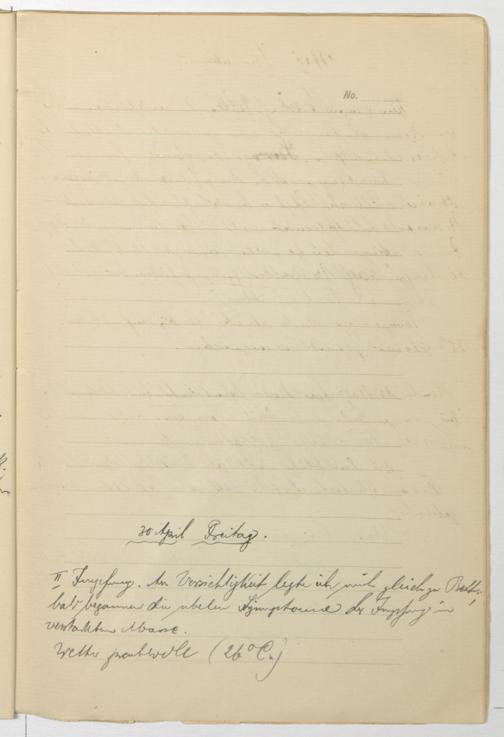 No.
30 April Freitag.
II Impfung. An Vorsichtigkeit legte ich mich gleich zu Bett,
bald begannen die üblen Symptome der Impfung in
verstärktem Masse.
Wetter prachtvoll (26° C.)